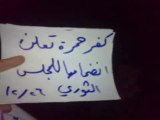 كفر حمرة تعلن
انضمامها للمجلس
الثوري
١٢/٢٦